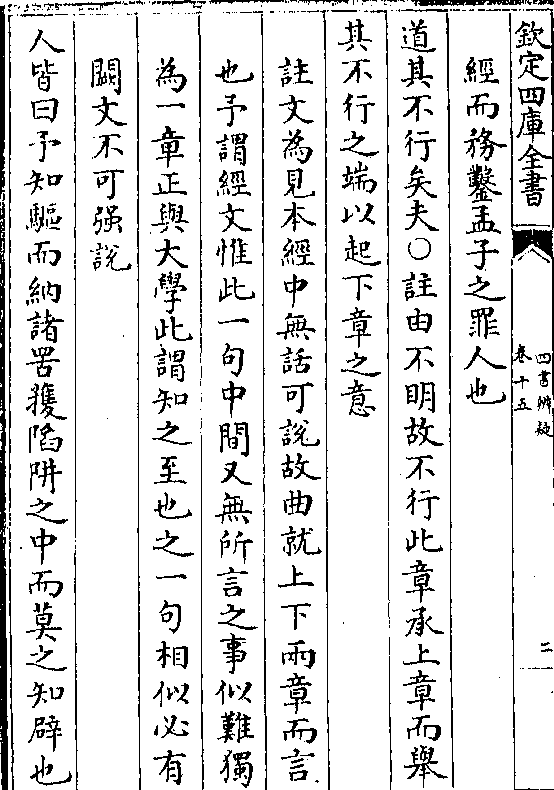 欽定四庫全書
四書辨疑
卷十五
二
經而務鑿孟子之罪人也
道其不行矣夫○註由不明故不行此章承上章而舉
其不行之端以起下章之意
註文為見本經中無話可說故曲就上下兩章而言
也予謂經文惟此一句中間又無所言之事似難獨
為一章正與大學此謂知之至也之一句相似必有
闕文不可强說
人皆曰予知驅而納諸罟擭陷阱之中而莫之知辟也